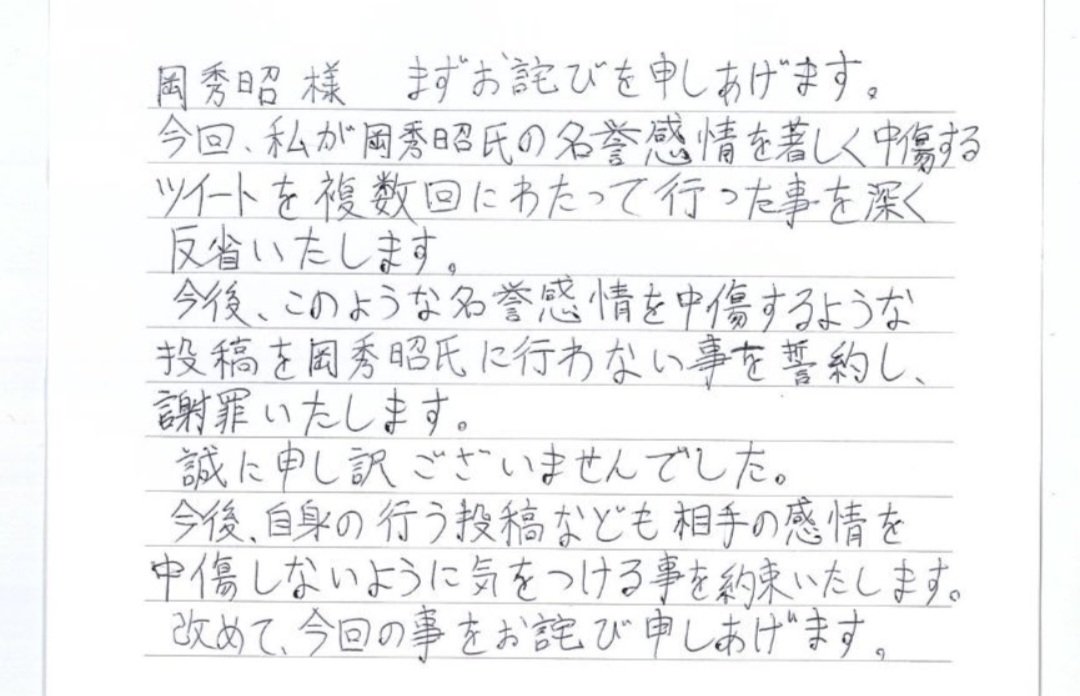 岡秀昭様　まずお詫びを申しあげます。
今回、私が岡秀昭氏の名誉感情を著しく中傷する
ツイートを複数回にわたって行った事を深く
反省いたします。
今後、このような名誉感情を中傷するような
投稿を岡秀昭氏に行わない事を誓約し、
謝罪いたします。
誠に申し訳ございませんでした。
今後、自身の行う投稿なども相手の感情を
中傷しないように気をつける事を約束いたします。
改めて、今回の事をお詫び申しあげます。